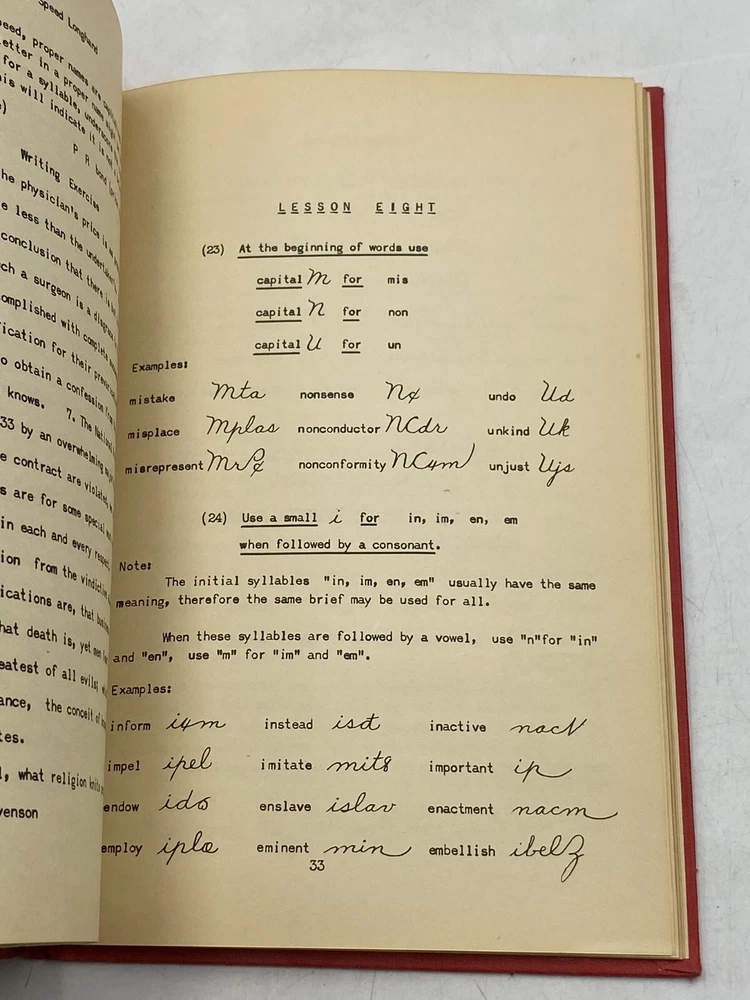 Speed Longhand
eed, proper names are
etter in a proper name
for a syllable, underscore
his will indicate it is
P R bond
Writing Exercise
he physician's price is an
e less than the undertaker's
conclusion that there is
ch a surgeon is a
omplished with complete
ification for their
o obtain a confession
knows. 7. The National
33 by an overwhelming
e contract are violated
s are for some special
in each and every respect
ion from the vindictive
ications are, that
hat death is, yet men
eatest of all evils;
ance, the conceit of
tes.
l, what religion
venson
LESSON EIGHT
(23) At the beginning of words use
capital M for mis
capital N for non
capital U for un
Examples:
mistake Mta nonsense N¢ undo Ud
misplace Mplas nonconductor NCdr unkind Uk
misrepresent MrP¢ nonconformity NC4m unjust Ujs
(24) Use a small i for in, im, en, em
when followed by a consonant.
Note:
The initial syllables "in, im, en, em" usually have the same
meaning, therefore the same brief may be used for all.
When these syllables are followed by a vowel, use "n"for "in"
and "en", use "m" for "im" and "em".
Examples:
inform i4m instead isd inactive nacV
impel ipel imitate mit8 important ip
endow ido enslave islav enactment nacm
employ iplo eminent min embellish ibelz
33